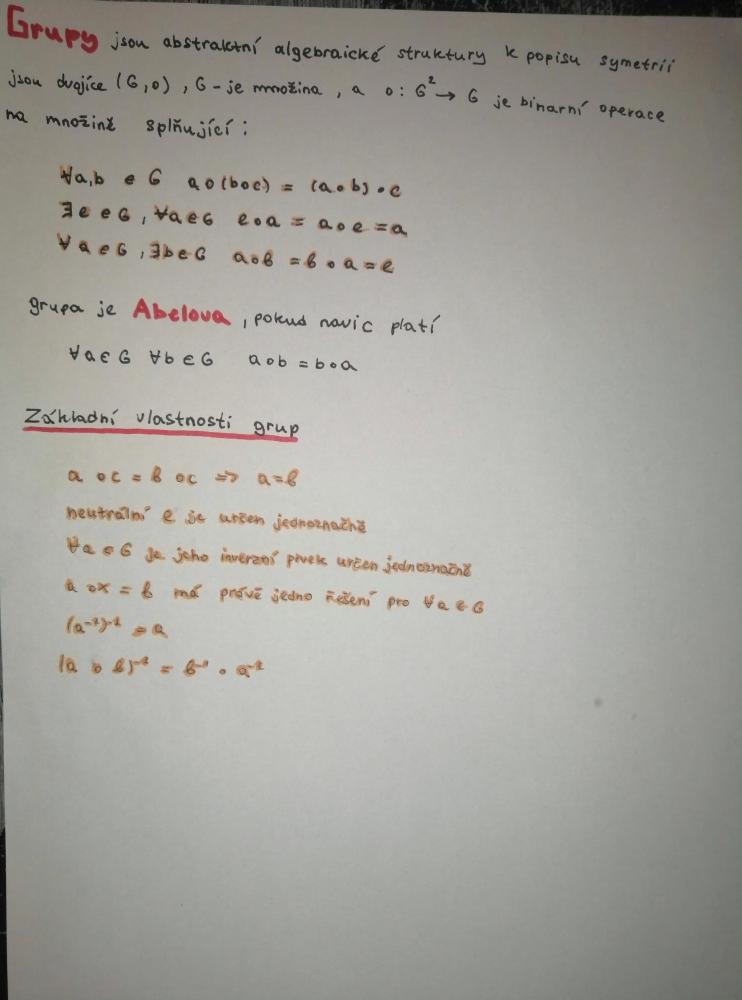 Grupy jsou abstraktní algebraické struktury k popisu symetrií
jsou dvojice (G,o), G - je množina, a o: G² → G je binarní operace
na množině splňující:
∀a,b e G a o (b o c) = (a o b) o c
∃e e G, ∀a e G e o a = a o e = a
∀a e G, ∃b e G a o b = b o a = e
grupa je Abelova, pokud navic platí
∀a ∈ G ∀b ∈ G a o b = b o a
Základní vlastnosti grup
a o c = b o c => a = b
neutrální e je určen jednoznačně
∀a e G je jeho inverzní prvek určen jednoznačně
a o x = b má právě jedno řešení pro ∀a e G
(a⁻¹)⁻¹ = a
(a o b)⁻¹ = b⁻¹ o a⁻¹